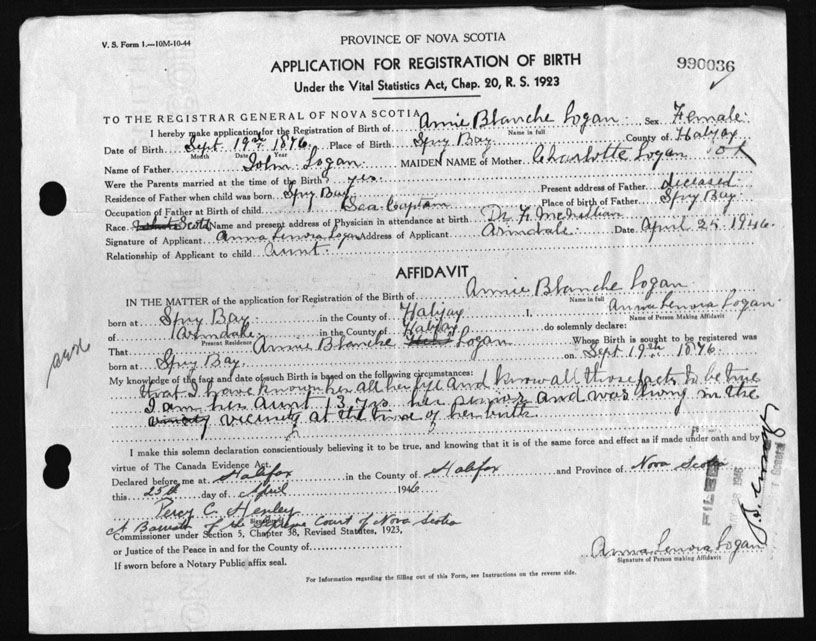 PROVINCE OF NOVA SCOTIA
V. S. Form 1.—10M-10-44
APPLICATION FOR REGISTRATION OF BIRTH
990036
Under the Vital Statistics Act, Chap. 20, R. S. 1923
TO THE REGISTRAR GENERAL OF NOVA SCOTIA
I hereby make application for the Registration of Birth of Annie Blanche Logan Sex Female
Name in full
Date of Birth Sept 19th 1876 Place of Birth Spry Bay County of Halifax
Month Date Year
Name of Father John Logan MAIDEN NAME of Mother Charlotte Logan ok
Were the Parents married at the time of the Birth? yes. Present address of Father deceased
Residence of Father when child was born Spry Bay Place of birth of Father Spry Bay
Occupation of Father at Birth of child Sea Captain
Race Scotch Name and present address of Physician in attendance at birth Dr F. McMillian
Signature of Applicant Anna Lenora Logan Address of Applicant Armdale Date April 25 1946.
Relationship of Applicant to child aunt.
AFFIDAVIT
IN THE MATTER of the application for Registration of the Birth of Annie Blanche Logan
Name in full
born at Spry Bay in the County of Halifax I, Anna Lenora Logan
Name of Person Making Affidavit
of Armdale in the County of Halifax do solemnly declare:
Present Residence
That Annie Blanche Logan Whose Birth is sought to be registered was
born at Spry Bay on Sept 19th 1876.
My knowledge of the fact and date of such Birth is based on the following circumstances:
that I have known her all her life and know all those facts to be true
I am her aunt 13 yrs her senior and was living in the
vicinity at the time of her birth
I make this solemn declaration conscientiously believing it to be true, and knowing that it is of the same force and effect as if made under oath and by
virtue of The Canada Evidence Act.
Declared before me at Halifax in the County of Halifax and Province of Nova Scotia
this 25th day of April 1946
Percy C. Henley
A Barrister of the Supreme Court of Nova Scotia
Commissioner under Section 5, Chapter 38, Revised Statutes, 1923,
or Justice of the Peace in and for the County of
If sworn before a Notary Public affix seal.
Anna Lenora Logan
Signature of Person making Affidavit
For Information regarding the filling out of this Form, see Instructions on the reverse side.
FILED
1946